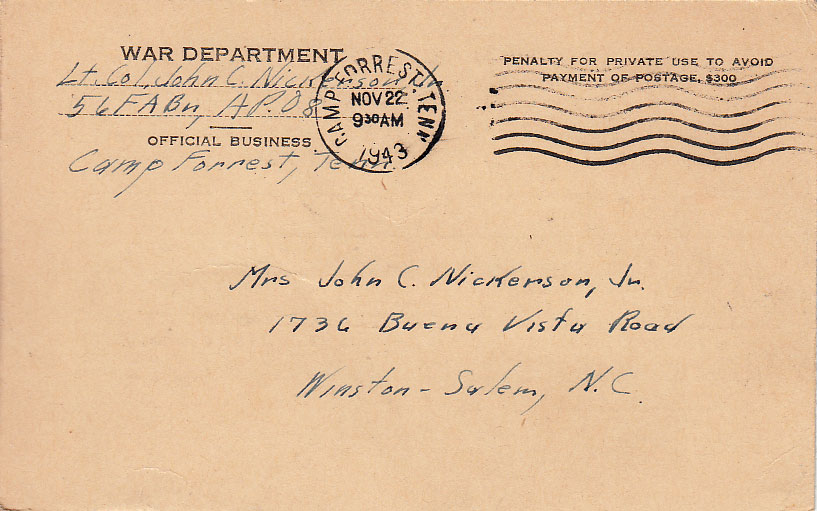 WAR DEPARTMENT
Lt. Col. John C. Nickerson Jr.
56 FA Bn, A.P.O 8
OFFICIAL BUSINESS
Camp Forrest, Tenn.
CAMP FORREST, TENN.
NOV 22
9 30 AM
1943
PENALTY FOR PRIVATE USE TO AVOID
PAYMENT OF POSTAGE, $300
Mrs John C. Nickerson, Jr.
1736 Buena Vista Road
Winston-Salem, N.C.